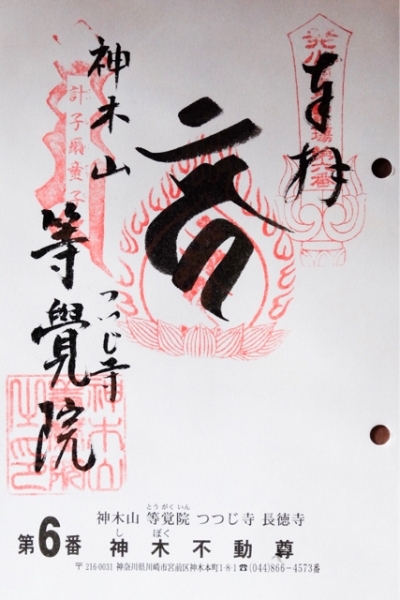 奉拝
神木山
計子爾童子
等覺院
つゝじ寺
神木山 等覚院 つつじ寺 長徳寺
とうがくいん
第6番 神木不動尊
しぼく
〒216-0031 神奈川県川崎市宮前区神木本町1-8-1 ☎(044)866-4573番